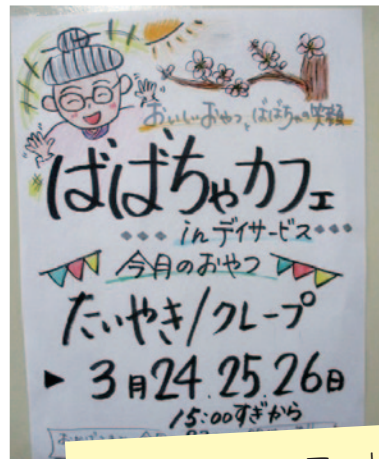 おいしいおやつ、ばばちゃの笑顔
ばばちゃカフェ
in デイサービス
今月のおやつ
たいやき/クレープ
▶ 3月24.25.26日
15:00すぎから